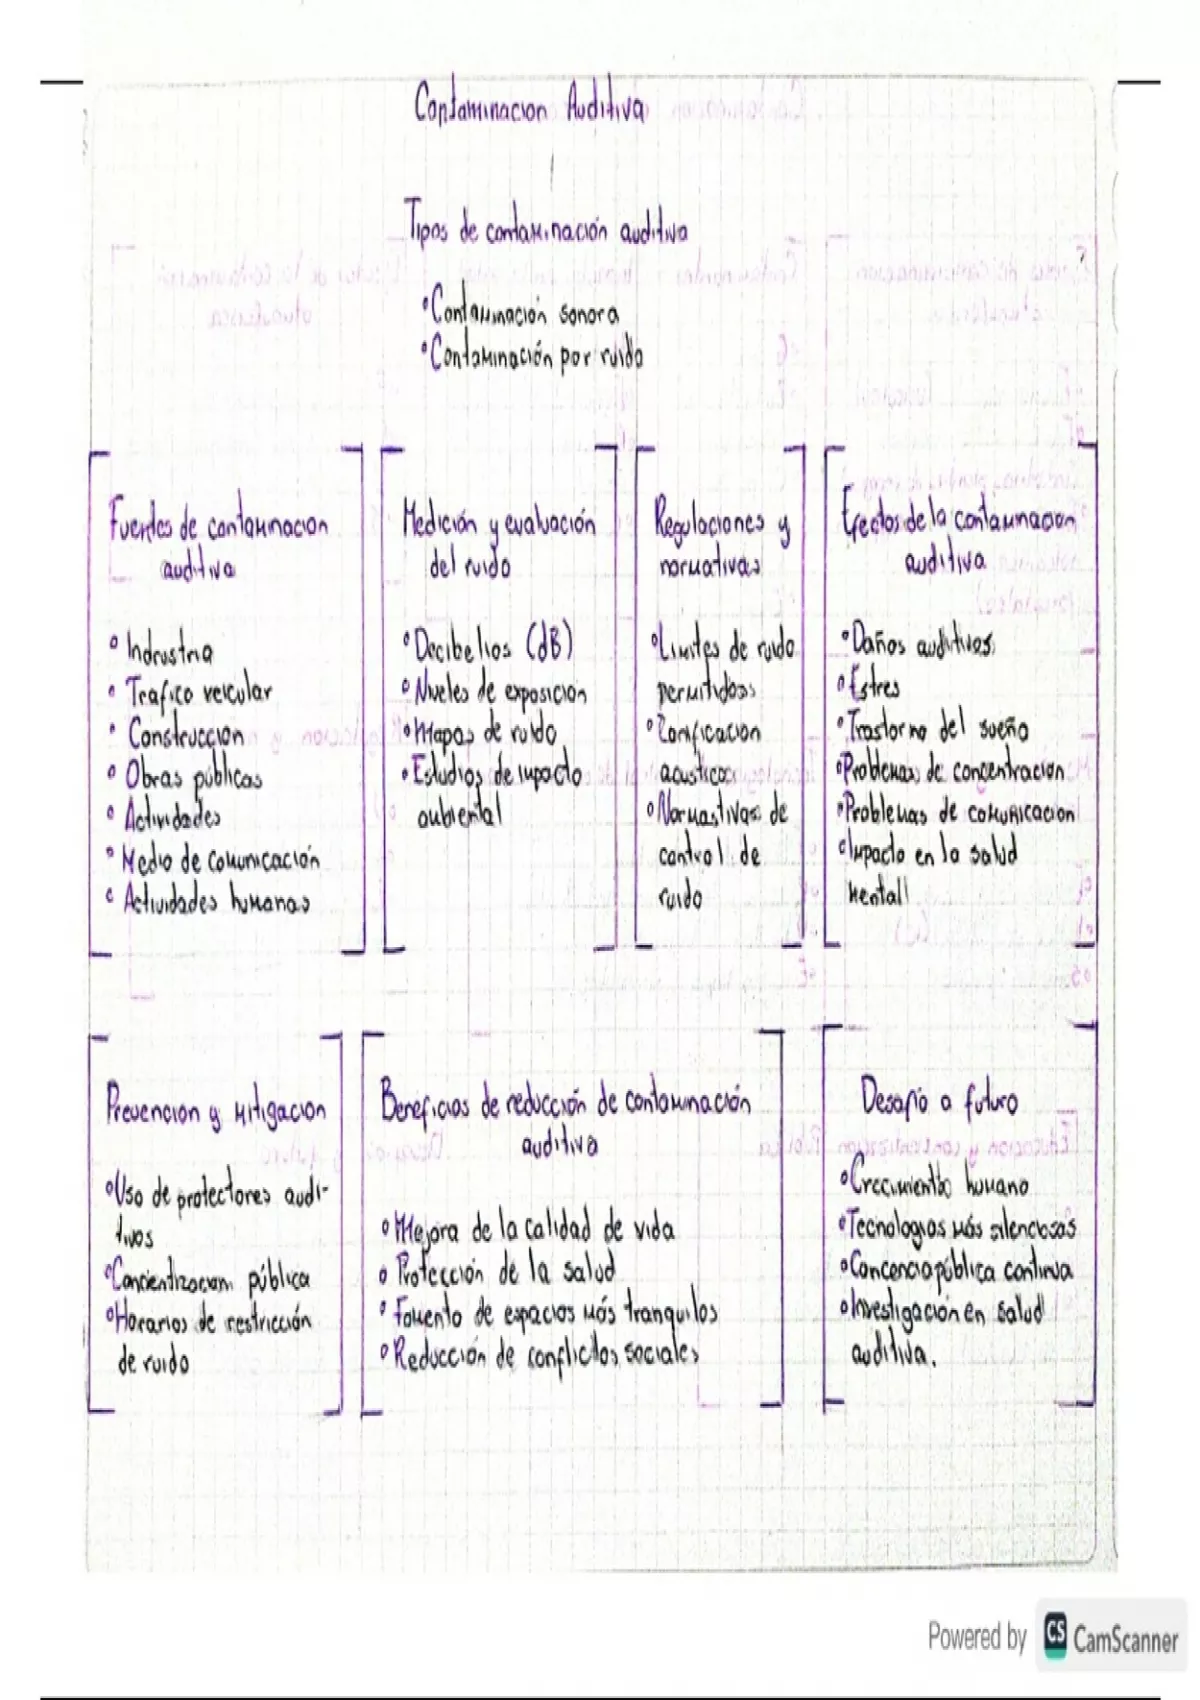 Contaminacion Auditiva
Tipos de contaminación auditiva
°Contaminación sonora
°Contaminación por ruido
Fuentes de contaminacion
auditiva
° Industria
° Trafico veicular
° Construcción
° Obras públicas
° Actividades
° Medio de comunicación
° Actividades humanas
Medición y evaluación
del ruido
°Decibelios (dB)
°Niveles de exposición
°Mapas de ruido
°Estudios de impacto
ambiental
Regulaciones y
normativas
°Limites de ruido
permitidos
°Zonificacion
acustica
°Normastivas de
control de
ruido
Efectos de la contaminacion
auditiva
°Daños auditivos
°Estres
°Trastorno del sueño
°Problemas de concentracion
°Problemas de comunicacion
°Impacto en la salud
mental
Prevencion y mitigacion
°Uso de protectores audi-
tivos
°Concientizacion pública
°Horarios de restricción
de ruido
Beneficios de reducción de contaminación
auditiva
°Mejora de la calidad de vida
° Protección de la salud
° Fomento de espacios más tranquilos
°Reducción de conflictos sociales
Desafio a futuro
°Crecimiento humano
°Tecnologias más silenciosas
°Concencia pública continua
°Investigación en salud
auditiva.
Powered by CS CamScanner